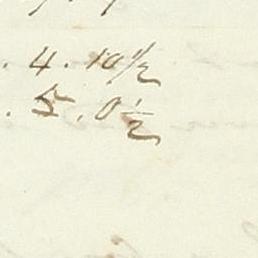 . 4 . 10 ½
. 5 . 0 ½